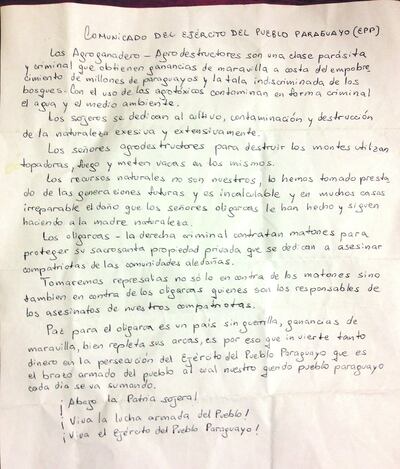 COMUNICADO DEL EJÉRCITO DEL PUEBLO PARAGUAYO (EPP)
Los Agroganadero - Agrodestructores son una clase parásita
y criminal que obtienen ganancias de maravilla a costa del empobre
cimiento de millones de paraguayos y la tala indiscriminada de los
bosques. Con el uso de los agrotóxicos contaminan en forma criminal
el agua y el medio ambiente.
Los sojeros se dedican al cultivo, contaminación y destrucción
de la naturaleza exesiva y extensivamente.
Los señores agrodestructores para destruir los montes utilizan
topadoras, fuego y meten vacas en los mismos.
Los recursos naturales no son nuestros, lo hemos tomado presta
do de las generaciones futuras y es incalculable y en muchos casos
irreparable el daño que los señores oligarcas le han hecho y siguen
haciendo a la madre naturaleza.
Los oligarcas - la derecha criminal contratan matones para
proteger su sacrosanta propiedad privada que se dedican a asesinar
compatriotas de las comunidades aledañas.
Tomaremos represalias no sólo en contra de los matones sino
tambien en contra de los oligarcas quienes son los responsables de
los asesinatos de nuestros compatriotas.
Paz para el oligarca es un país sin guerrilla, ganancias de
maravilla, bien repleta sus arcas, es por eso que invierte tanto
dinero en la persecución del Ejército del Pueblo Paraguayo que es
el brazo armado del pueblo al cual nuestro querido pueblo paraguayo
cada día se va sumando.
¡Abajo la Patria sojera!
¡Viva la lucha armada del Pueblo!
¡Viva el Ejército del Pueblo Paraguayo!